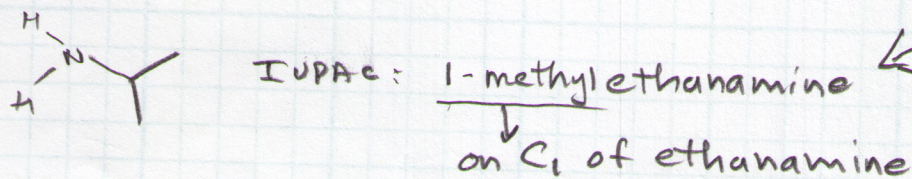 H
N
H
IUPAC: 1-methylethanamine
on C1 of ethanamine